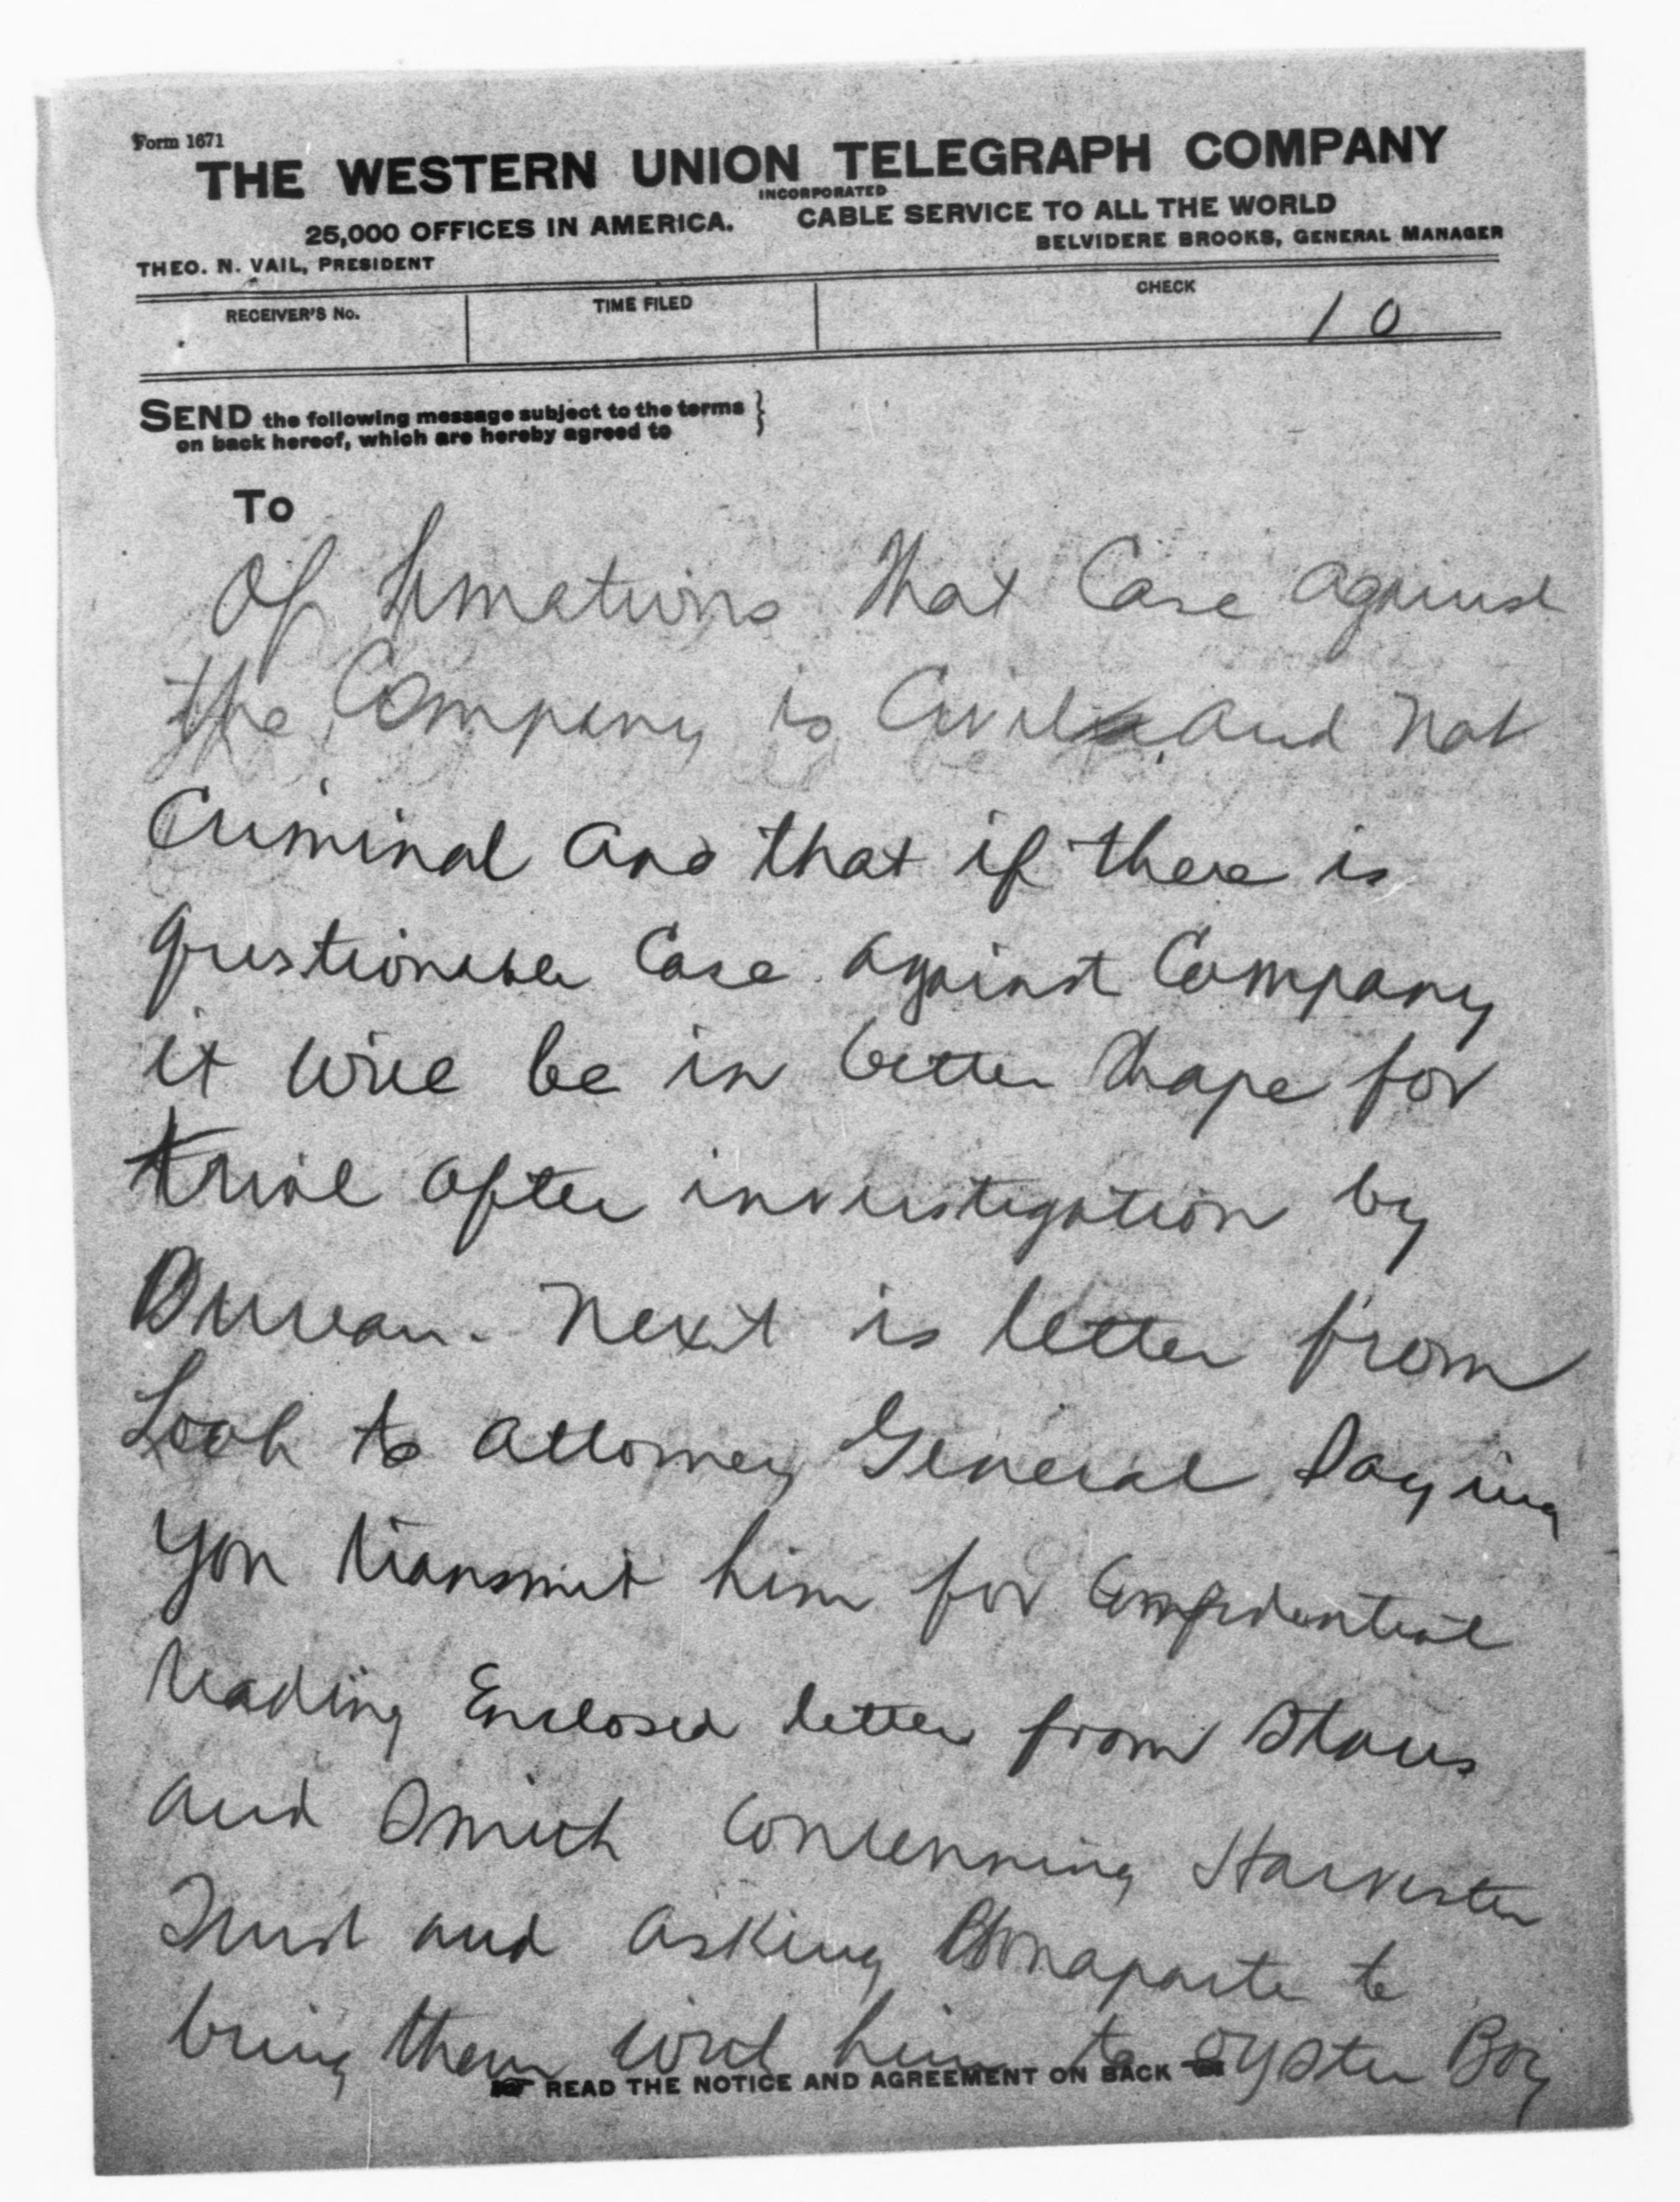 Form 1671
THE WESTERN UNION TELEGRAPH COMPANY
INCORPORATED
25,000 OFFICES IN AMERICA. CABLE SERVICE TO ALL THE WORLD
THEO. N. VAIL, PRESIDENT BELVIDERE BROOKS, GENERAL MANAGER
RECEIVER'S No. TIME FILED CHECK
10
SEND the following message subject to the terms
on back hereof, which are hereby agreed to
To
Of limations That Case against
the Company is Civil and Not
Criminal and that if there is
questionable Case against Company
it will be in better shape for
trial after investigation by
Bureau. Next is letter from
Loeb to Attorney General Saying
you transmit him for Confidential
reading Enclosed letter from
and Smith Concerning Harvester
Trust and asking Bonaparte to
bring them with him to Oyster Bay
READ THE NOTICE AND AGREEMENT ON BACK